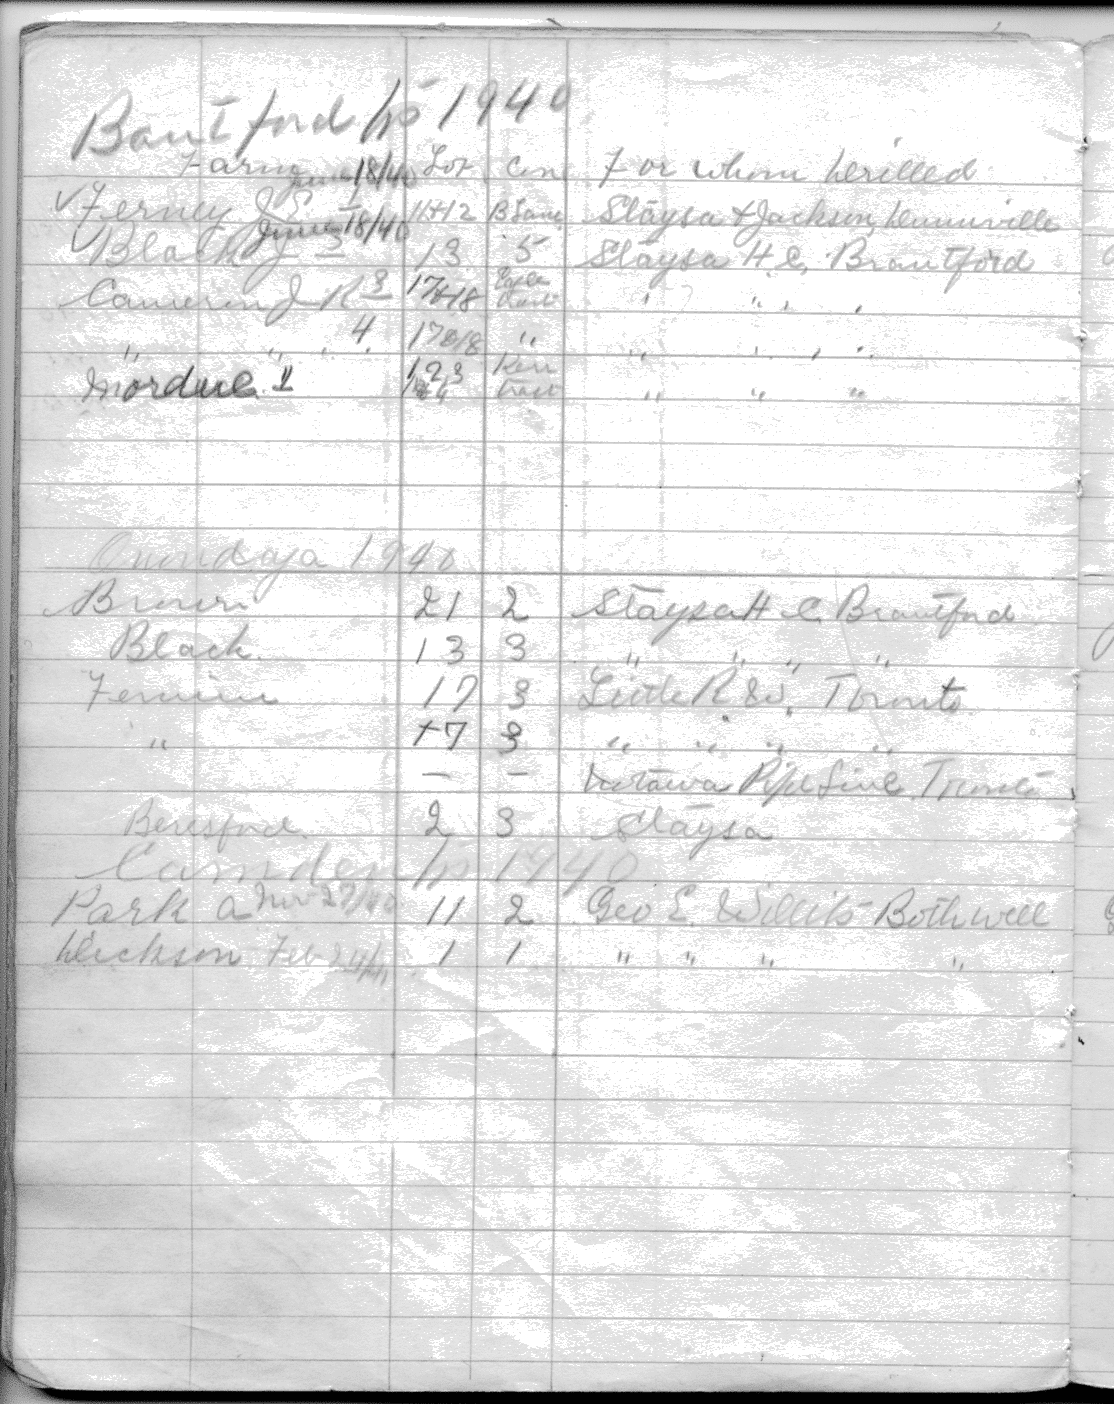 Brantford Tp 1940
Farm June 18/40 Lot Con For whom Drilled
✓ Ferney J S 1 11+12 B Lane Staysa & Jackson, Dunnville
June 18/40
✓ Black J 3 13 5 Staysa H C, Brantford
Cameron J R 3 17+18 Eagle Nest " " " "
" " " 4 17 & 18 " " " " "
Mordue 1 1 2 3 + 4 Kerr Tract " " "
Onondaga 1940
Brown 21 2 Staysa H C Brantford
Black 13 3 " " " "
Fennim 17 3 Little R W. Toronto
" 7 3 " " " "
— — Pipe Line Toronto
Beresford 2 3 Staysa
Camden Tp 1940
Park A Nov 27/40 11 2 Geo E. Willits Bothwell
Dickson Feb 24/41 1 1 " " " "